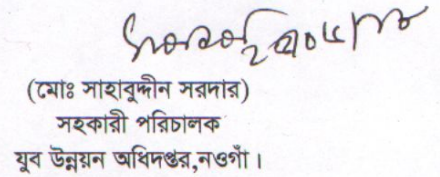 (মোঃ সাহাবুদ্দীন সরদার)
সহকারী পরিচালক
যুব উন্নয়ন অধিদপ্তর,নওগাঁ।